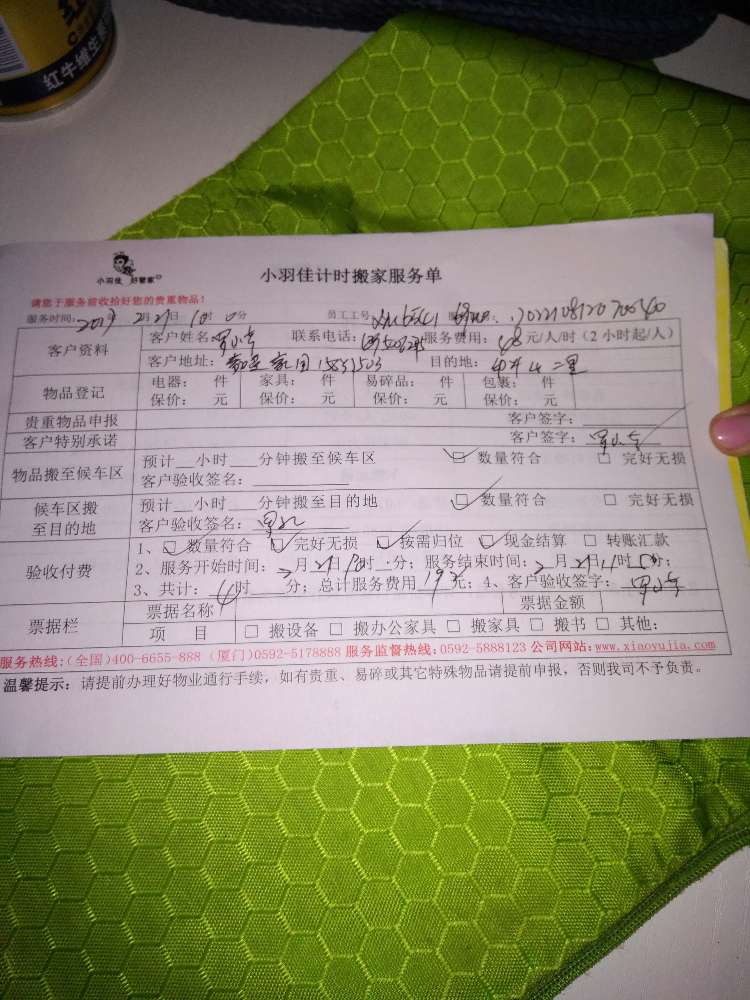 红牛维生
小羽佳 好管家
小羽佳计时搬家服务单
请您于服务前收拾好您的贵重物品!
服务时间: 2019年2月21日10时0分 员工工号:
客户资料 客户姓名: 联系电话: 服务费用: 48元/人/时 (2小时起/人)
客户地址: 目的地:
物品登记 电器: 件 家具: 件 易碎品: 件 包裹: 件
保价: 元 保价: 元 保价: 元 保价: 元
贵重物品申报 客户签字:
客户特别承诺 客户签字:
物品搬至候车区 预计 小时 分钟搬至候车区 数量符合 完好无损
客户验收签名:
候车区搬至目的地 预计 小时 分钟搬至目的地 数量符合 完好无损
客户验收签名:
验收付费 1、 数量符合 完好无损 按需归位 现金结算 转账汇款
2、服务开始时间: 2月21日10时 分; 服务结束时间: 2月21日 时 分;
3、共计: 4时 分; 总计服务费用 元; 4、客户验收签字:
票据栏 票据名称 票据金额
项 目 搬设备 搬办公家具 搬家具 搬书 其他:
服务热线:(全国)400-6655-888 (厦门)0592-5178888 服务监督热线:0592-5888123 公司网站:www.xiaoyujia.com
温馨提示: 请提前办理好物业通行手续, 如有贵重、易碎或其它特殊物品请提前申报, 否则我司不予负责。